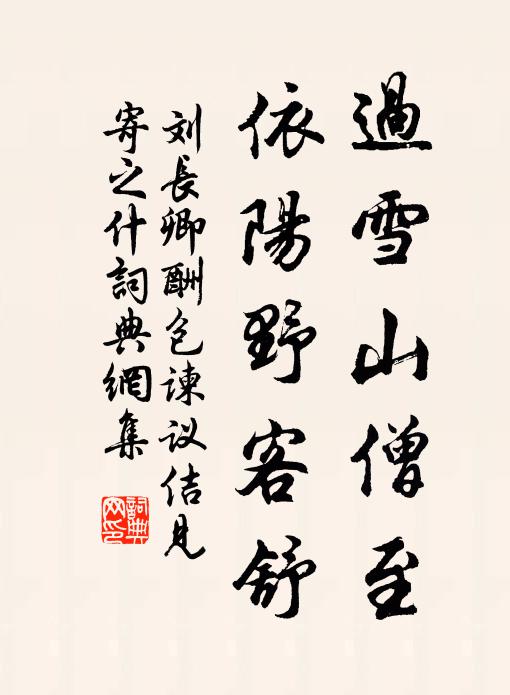 過雪山僧至
依陽野客舒
刘長卿酬包諫议佶見
寄之什詞典網集
詞典網印